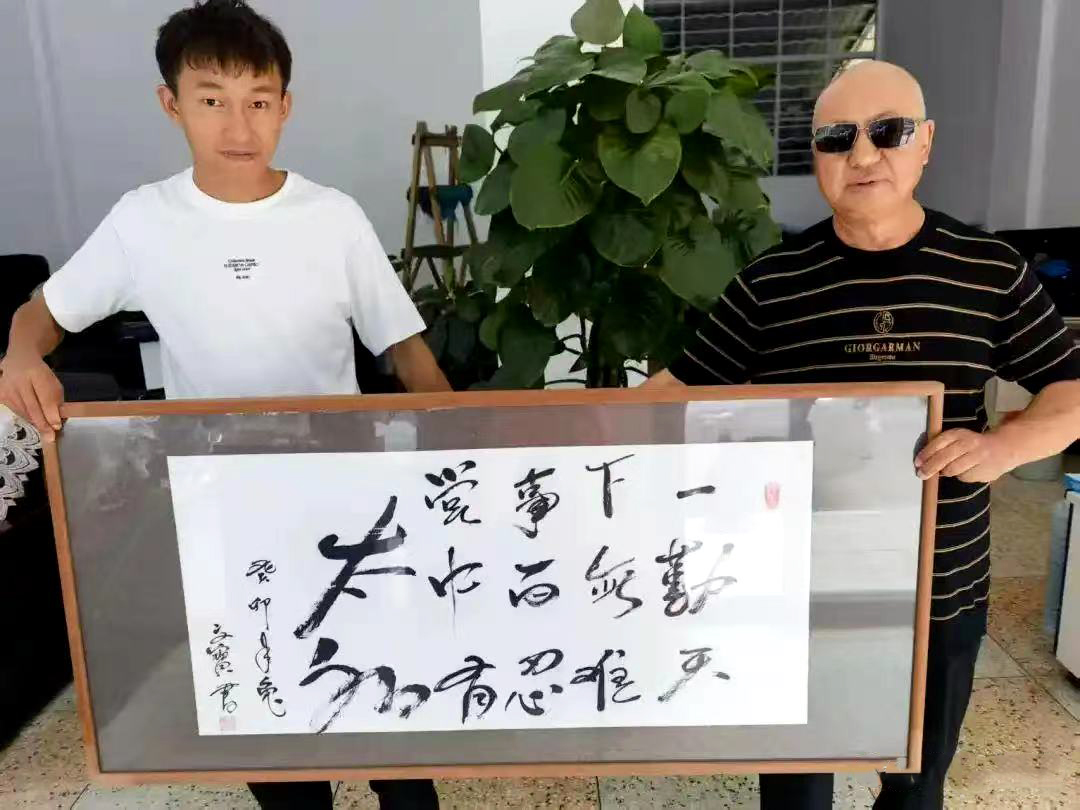 一勤天
下無難
事百忍
堂中有
太和
癸卯年兔
文寶書
GIORGARMAN